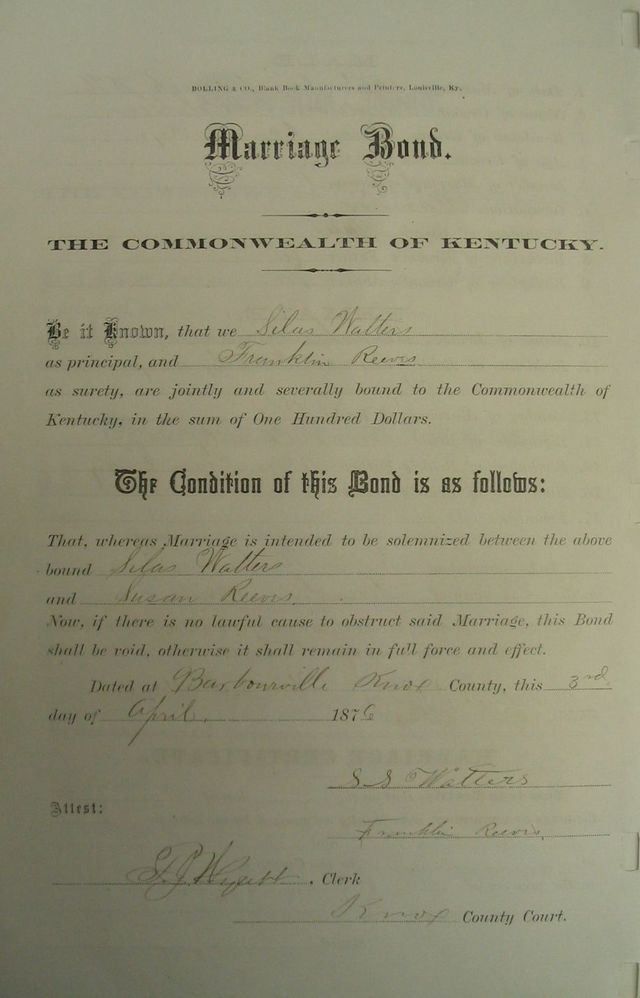 BOLLING & CO., Blank Book Manufacturers and Printers, Louisville, Ky.
Marriage Bond.
THE COMMONWEALTH OF KENTUCKY.
Be it Known, that we Silas Watters
as principal, and Franklin Reevis
as surety, are jointly and severally bound to the Commonwealth of
Kentucky, in the sum of One Hundred Dollars.
The Condition of this Bond is as follows:
That, whereas Marriage is intended to be solemnized between the above
bound Silas Watters
and Susan Reevis.
Now, if there is no lawful cause to obstruct said Marriage, this Bond
shall be void, otherwise it shall remain in full force and effect.
Dated at Barbourville Knox County, this 3rd
day of April. 1876
S S Watters
Attest:
Franklin Reevis
, Clerk
Knox County Court.